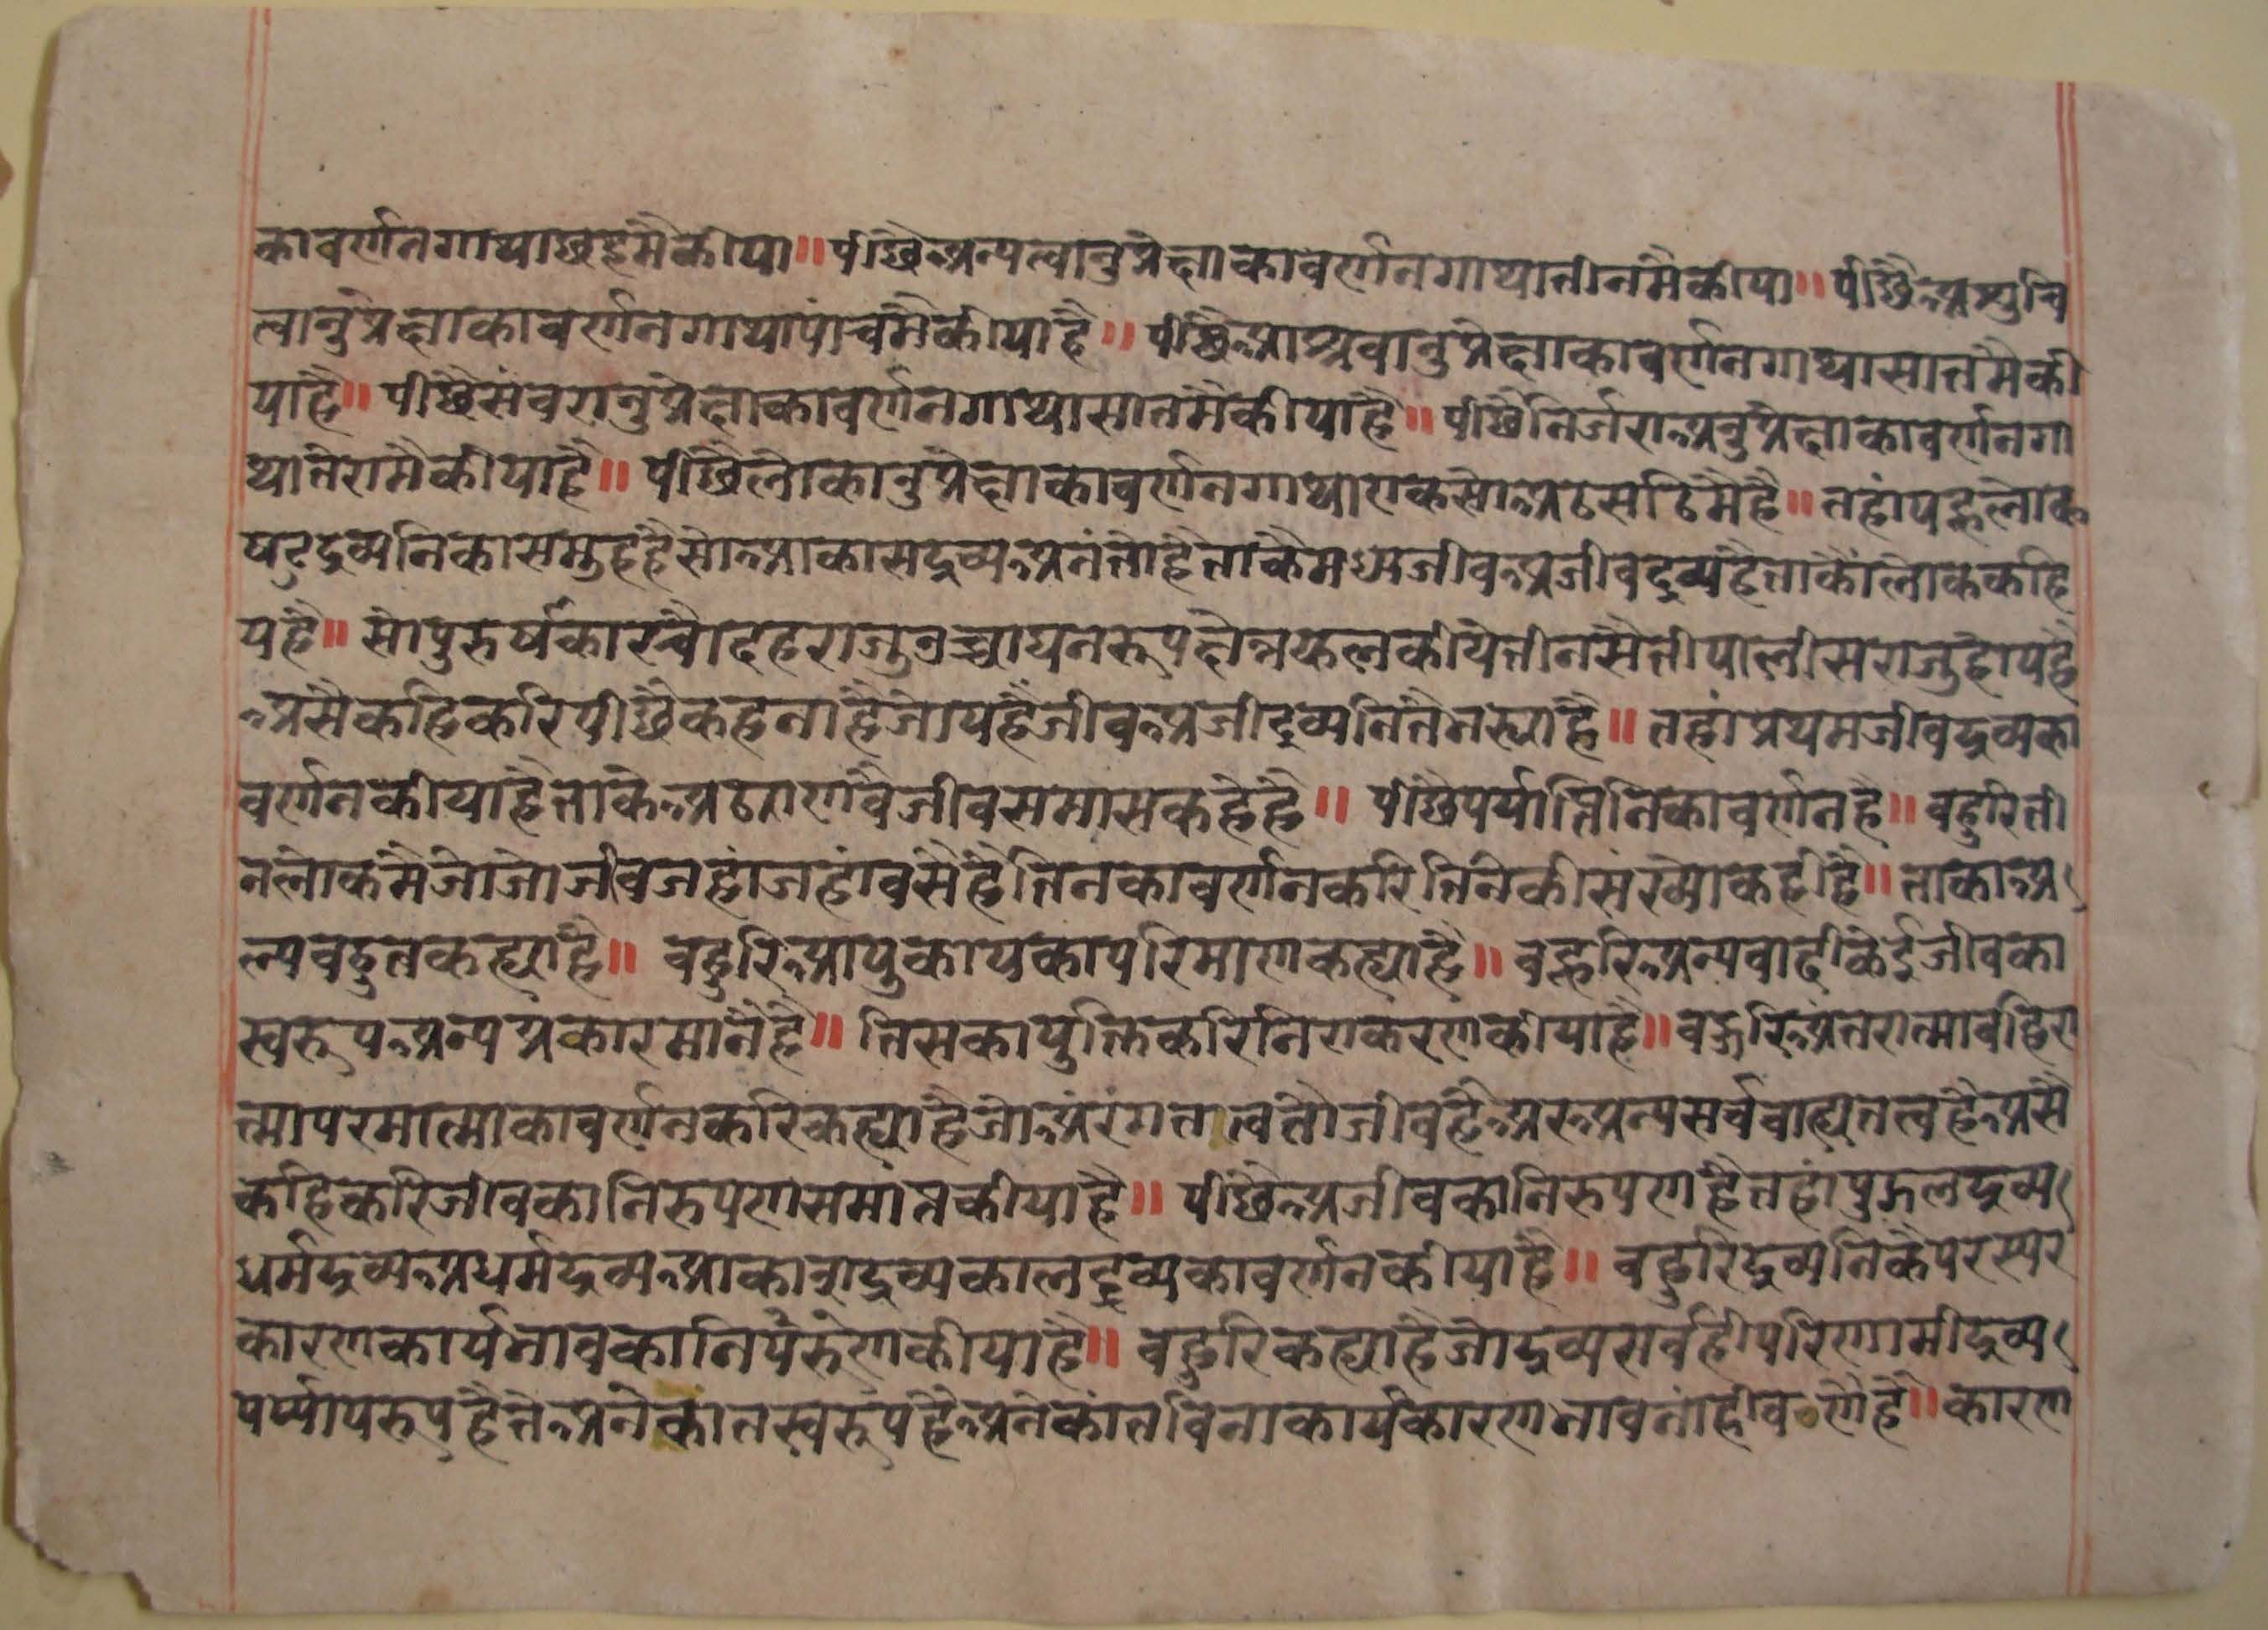 कावर्णनगाथाछहमैकीया॥पीछैअन्यत्वानुप्रेक्षाकावर्णनगाथातीनमैकीया॥पीछैअशुचि
त्वानुप्रेक्षाकावर्णनगाथापांचमैकीयाहै॥पीछैआश्रवानुप्रेक्षाकावर्णनगाथासातमैकी
याहै॥पीछैसंवरानुप्रेक्षाकावर्णनगाथासातमैकीयाहै॥पीछैनिर्जराअनुप्रेक्षाकावर्णनगा
थातेरामैकीयाहै॥पीछैलोकानुप्रेक्षाकावर्णनगाथाएकसोअठसठिमैहै॥तहांयहलोक
षट्द्रव्यनिकासमुहहैसोआकासद्रव्यअनंतोहैताकैमध्यजीवअजीवद्रव्यहैताकौंलोककहि
यहै॥सोपुरुषकारचौदहराजुउच्चायनरूपक्षेत्रफलकीयेतीनसैतीयालीसराजुहोयहै
असैकहिकरिपीछैकहनाहैजोयहैजीवअजीद्रव्यनितैभर्याहै॥तहांप्रथमजीवद्रव्यका
वर्णनकीयाहैताकेअठाणवैजीवसमासकहेहै॥पीछैपर्याप्तिनिकावर्णनहै॥बहुरिती
नलोकमैजोजोजीवजहांजहांवसैहैतिनकावर्णनकरितिनकीसंख्याकहीहै॥ताकाअ
ल्पबहुतकह्याहै॥बहुरिआयुकायकापरिमाणकह्याहै॥बहुरिअन्यवादीकेईजीवका
स्वरूपअन्यप्रकारमानैहै॥तिसकायुक्तिकरिनिराकरणकीयाहै॥बहुरिअंतरात्माबहिरा
त्मापरमात्माकावर्णनकरिकह्याहैजोअंरंगतत्वतौजीवहैअरुअन्यसर्वबाह्यतत्वहैअसै
कहिकरिजीवकानिरुपणसमाप्तकीयाहै॥पीछैअजीवकानिरुपणहैतहांपुद्गलद्रव्य
धर्मद्रव्यअधर्मद्रव्यआकाशद्रव्यकालद्रव्यकावर्णनकीयाहै॥बहुरिद्रव्यनिकैपरस्पर
कारणकार्यभावकानिर्परुणकीयाहै॥बहुरिकह्याहैजोद्रव्यसर्वहीपरिणामीद्रव्य
पर्य्यायरुपहैतेअनेकांतस्वरूपहैअनेकांतविनाकार्यकारणभावनांहीवणैहै॥कारण